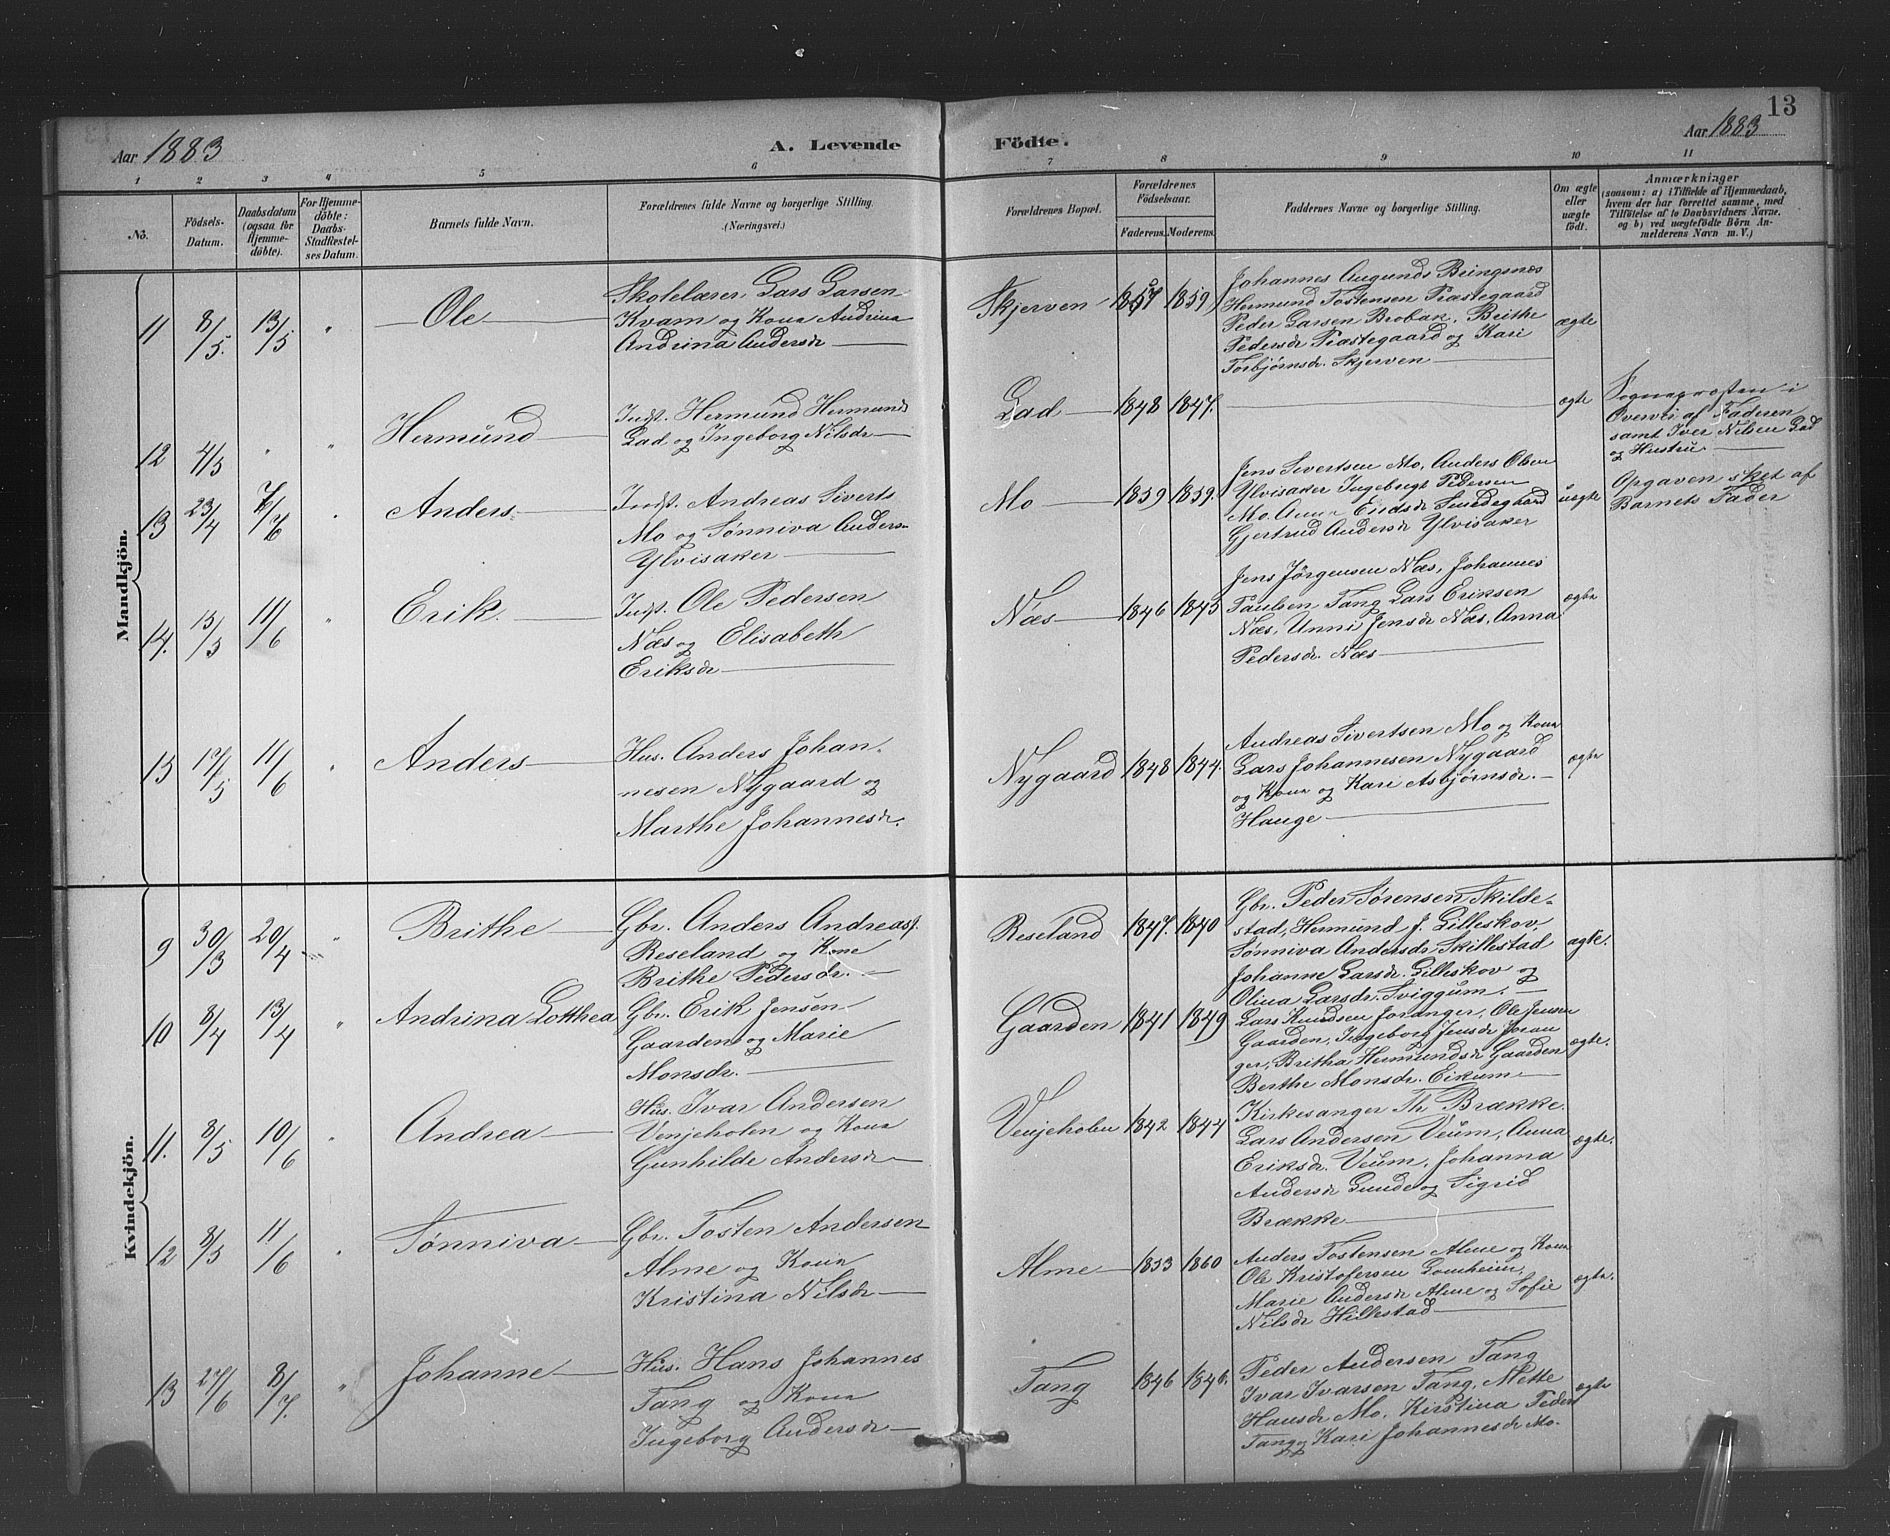 13
Aar 1883 A. Levende Födte. Aar 1883
1 2 3 4 5 6 7 8 9 10 11
No.
Födsels-Datum.
Daabsdatum (ogsaa for Hjemme-döbte).
For Hjemme-döbte: Daabs-Stadfestel-ses Datum.
Barnets fulde Navn.
Forældrenes fulde Navne og borgerlige Stilling. (Næringsvei.)
Forældrenes Bopæl.
Forældrenes Födselsaar.
Faderens. Moderens.
Faddernes Navne og borgerlige Stilling.
Om ægte eller uægte födt.
Anmærkninger
(saasom: a) i Tilfælde af Hjemmedaab, hvem der har forrettet samme, med Tilföielse af to Daabsvidners Navne, og b) ved uægtefödte Börn An-melderens Navn m. V.)
Mandkjön.
11 8/5. 13/5 " Ole
Skolelærer Lars Larsen
Kvam og Kona Andrina
Andrina Andersdr
Skjerven 1857 1859
Johannes Augunds Bringsnæs
Hermund Tostensen Præstegaard
Peder Larsen Brobak, Brithe
Pedersdr Præstegaard og Kari
Torbjørnsdr. Skjerven
ægte
12 4/5 " " Hermund
Indst. Hermund Hermunds
Lad og Ingeborg Nilsdr
Lad 1848 1847.
ægte
Sogneprosten i
Overvær af Faderen
samt Iver Nilsen Lad
og Hustru
13 23/4 7/6 " Anders
Indst. Andreas Siverts
Mo og Sønniva Anders
Ylvisaker
Mo 1859 1859.
Jens Sivertsen Mo, Anders Olsen
Ylvisaker Ingebrigt Pedersen
Mo. Anna
Gjertrud Andersdr Ylvisaker
uægte
Opgaven sket af
Barnets Fader
14. 15/5 11/6 " Erik.
Indst. Ole Pedersen
Næs og Elisabeth
Eriksdr
Næs 1846 1845
Jens Jørgensen Næs, Johannes
Paulsen Tang Lars Eriksen
Næs, Unni Jensdr Næs, Anna
Pedersdr. Næs
ægte
15 17/5 11/6 " Anders
Hus. Anders Johan-
nesen Nygaard og
Marthe Johannesdr.
Nygaard 1848 1844.
Andreas Sivertsen Mo og Kona
Lars Johannesen Nygaard
og Kona og Kari Asbjørnsdr.
Hauge
ægte
Kvindekjön.
9 30/3 20/4 " Brithe
Gbr. Anders Andreas.
Reseland og Kone
Brithe Pedersdr.
Reseland 1847. 1840
Gbr. Peder Sørensen Skilde-
stad, Hermund J. Lilleskov,
Sønniva Andersdr Skillestad
Johanne Larsdr. Lilleskov og
Olina Larsdr. Sviggum.
ægte.
10 8/4 13/4 " Andrina Lotthea
Gbr. Erik Jensen
Gaarden og Marie
Monsdr.
Gaarden 1841 1849
Lars Knudsen Joranger, Ole Jensen
Gaarden, Ingeborg Jensdr Joran
ger, Britha Hermundsdr Gaarden
Berthe Monsdr. Eikum
ægte.
11. 8/5 10/6 " Andrea
Hus. Ivar Andersen
Venjeholen og Kona
Gunhilde Andersdr
Venjeholen 1842 1844
Kirkesanger Th. Brække.
Lars Andersen Veum, Anna
Eriksdr. Veum, Johanna
Andersdr Lunde og Sigrid
Brække
ægte.
12 8/5 11/6 " Sønniva
Gbr. Tosten Andersen
Alme og Kona
Kristina Nilsdr
Alme 1853 1860
Anders Tostensen Alme og Kona
Ole Kristofersen Lomheim,
Marie Andersdr Alme og Sofie
Nilsdr Hillestad
ægte.
13 27/6 8/7. " Johanne
Hus. Hans Johannes
Tang og Kona
Ingeborg Andersdr
Tang 1846 1846.
Peder Andersen Tang
Ivar Ivarsen Tang, Nette
Hansdr Mo, Kirstina Peders
Tang og Kari Johannesdr Mo.
ægte